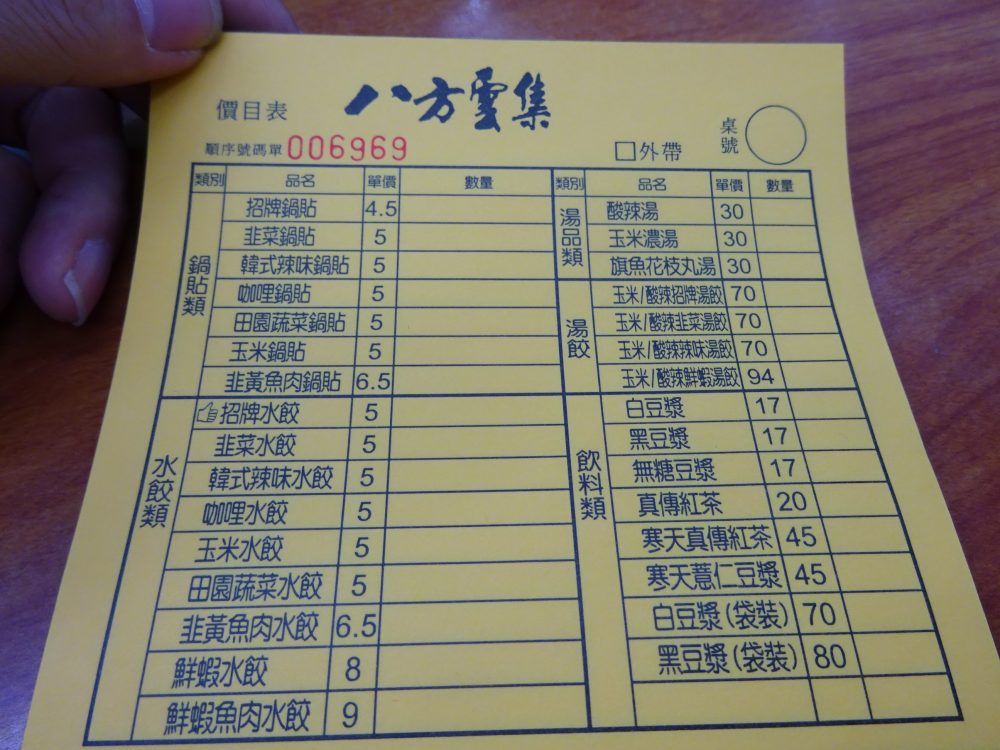 八方雲集
價目表
順序號碼單 006969
□外帶
桌號
類別 品名 單價 數量
鍋貼類
招牌鍋貼 4.5
韭菜鍋貼 5
韓式辣味鍋貼 5
咖哩鍋貼 5
田園蔬菜鍋貼 5
玉米鍋貼 5
韭黃魚肉鍋貼 6.5
水餃類
招牌水餃 5
韭菜水餃 5
韓式辣味水餃 5
咖哩水餃 5
玉米水餃 5
田園蔬菜水餃 5
韭黃魚肉水餃 6.5
鮮蝦水餃 8
鮮蝦魚肉水餃 9
類別 品名 單價 數量
湯品類
酸辣湯 30
玉米濃湯 30
旗魚花枝丸湯 30
湯餃
玉米/酸辣招牌湯餃 70
玉米/酸辣韭菜湯餃 70
玉米/酸辣辣味湯餃 70
玉米/酸辣鮮蝦湯餃 94
飲料類
白豆漿 17
黑豆漿 17
無糖豆漿 17
真傳紅茶 20
寒天真傳紅茶 45
寒天薏仁豆漿 45
白豆漿(袋裝) 70
黑豆漿(袋裝) 80